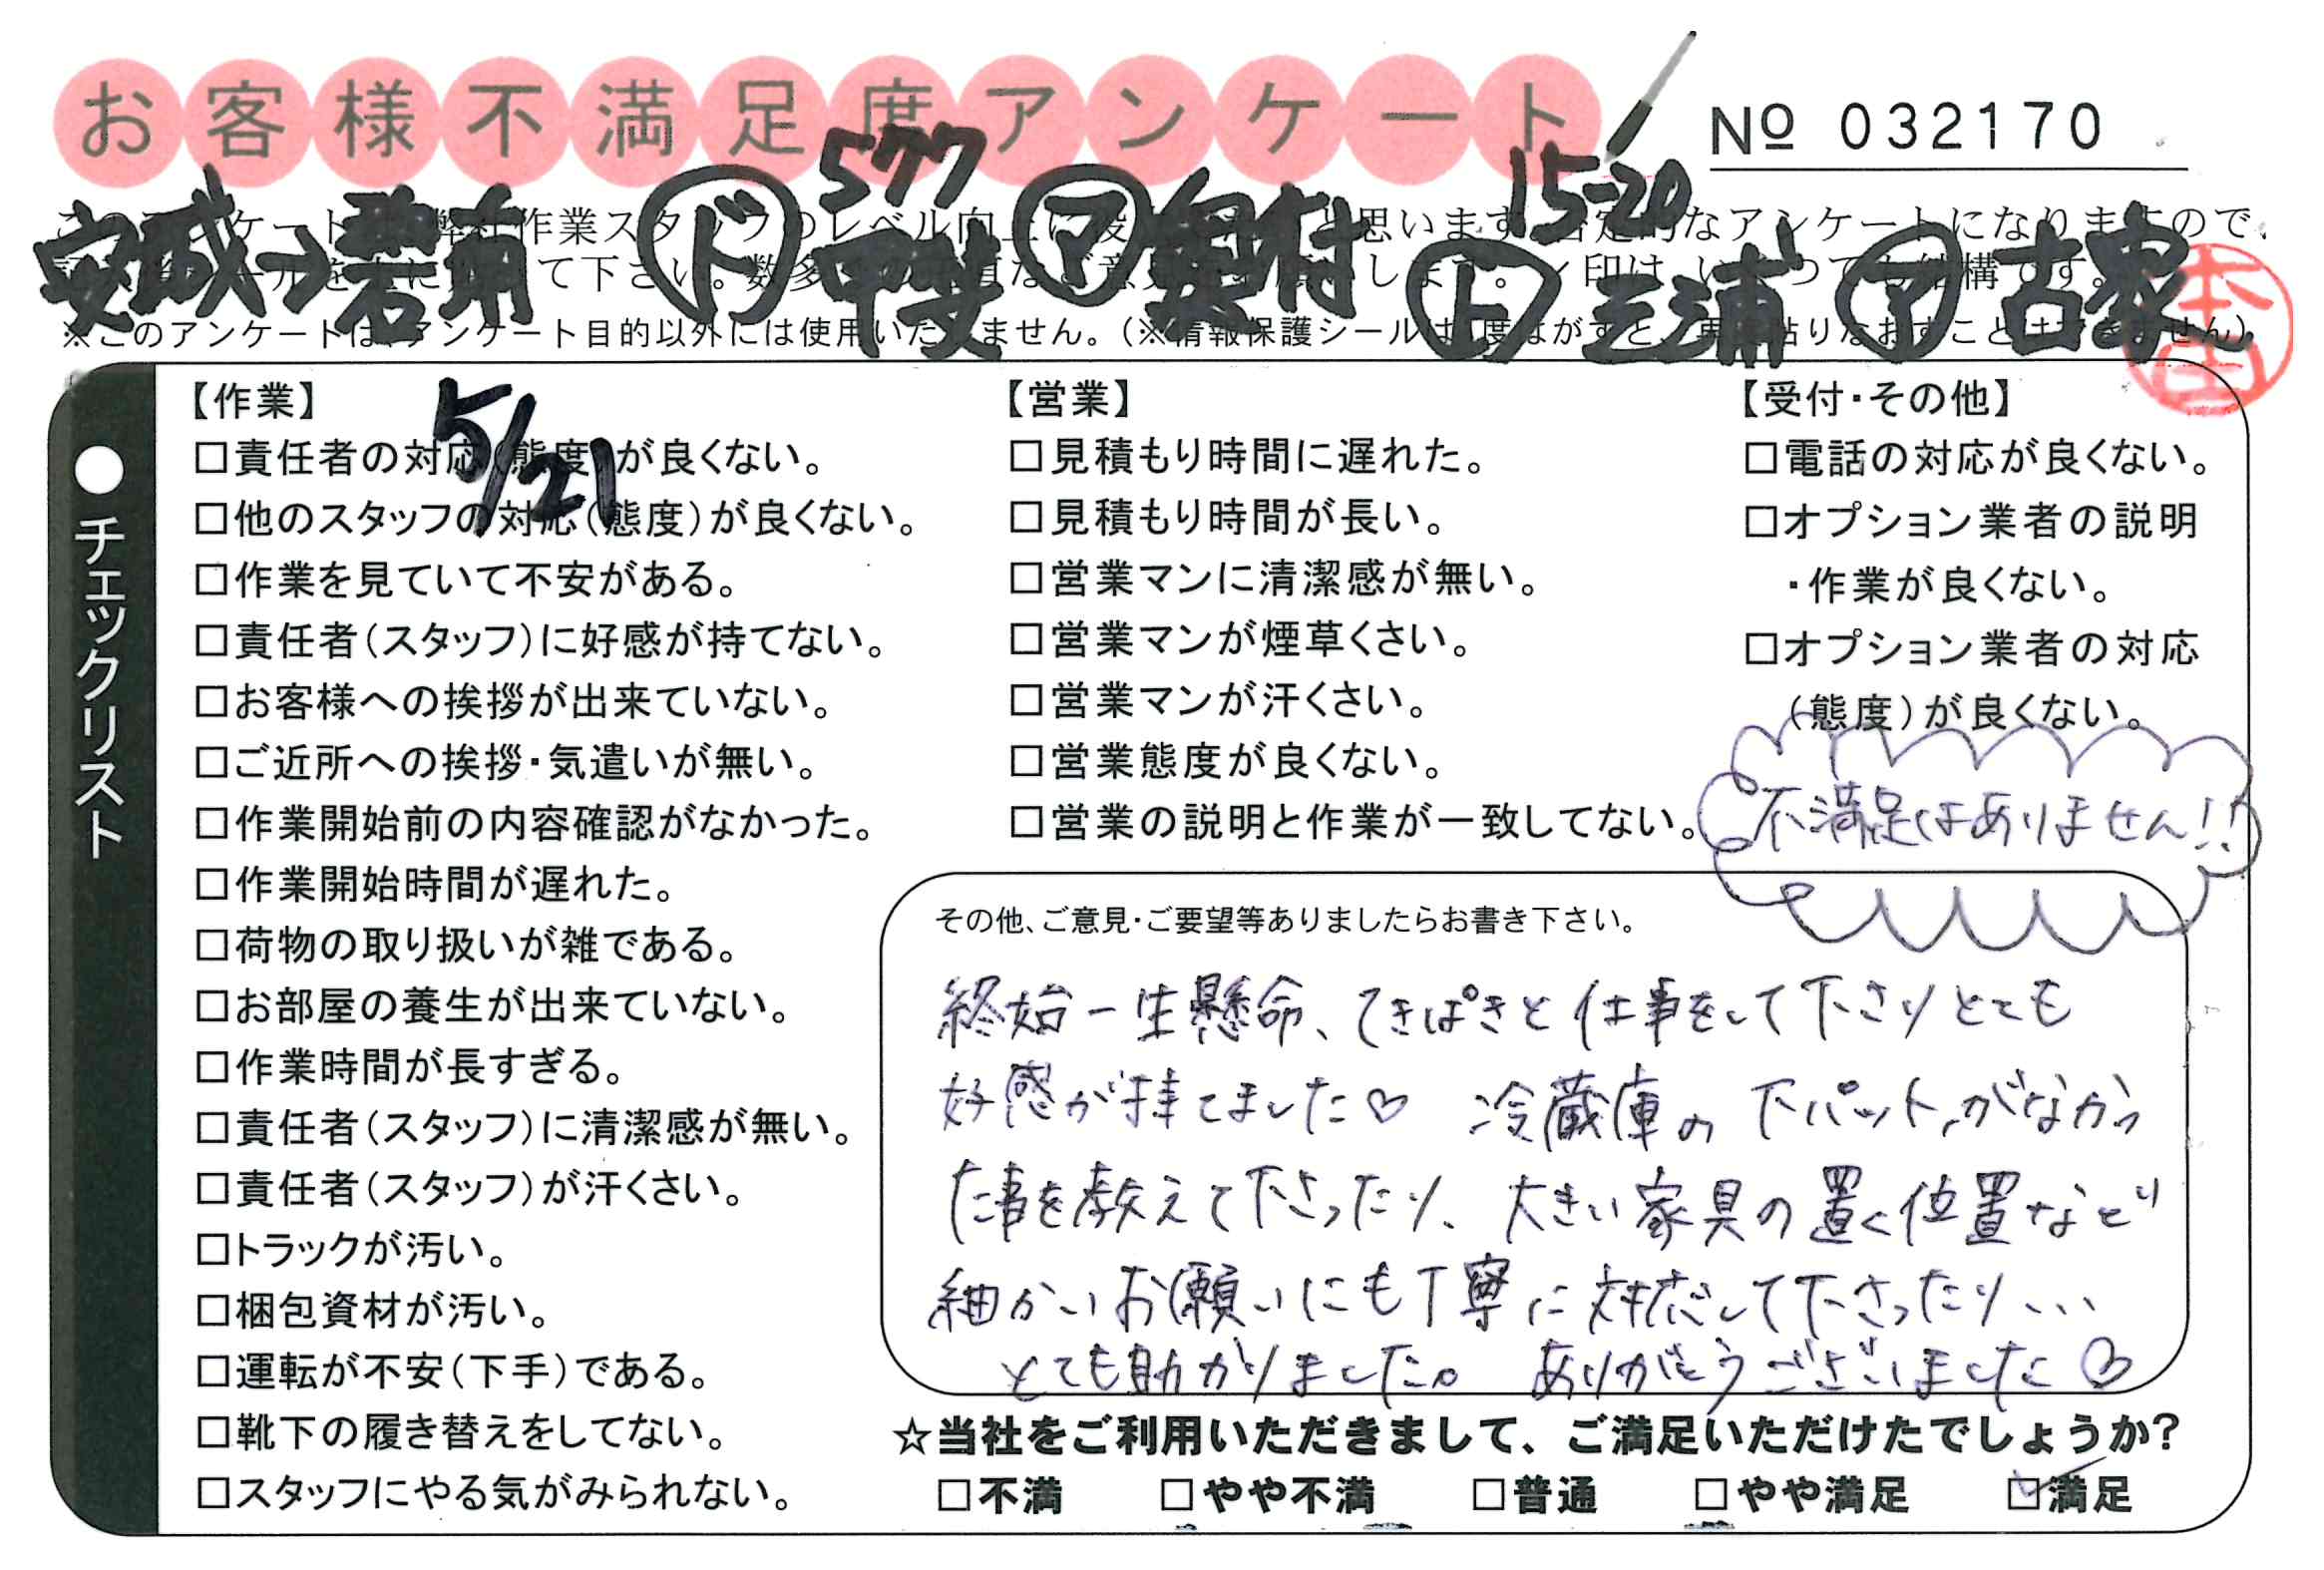 お客様不満足度アンケート
№ 032170
577
15-20
安城→碧南 ド 甲斐 ア 奥付 ド 三浦 ア 古家
※このアンケートは、アンケート目的以外には使用いたしません。(※情報保護シールは1度はがすと、再度貼りなおすことはできません)
5/21
●チェックリスト
【作業】
□責任者の対応(態度)が良くない。
□他のスタッフの対応(態度)が良くない。
□作業を見ていて不安がある。
□責任者(スタッフ)に好感が持てない。
□お客様への挨拶が出来ていない。
□ご近所への挨拶・気遣いが無い。
□作業開始前の内容確認がなかった。
□作業開始時間が遅れた。
□荷物の取り扱いが雑である。
□お部屋の養生が出来ていない。
□作業時間が長すぎる。
□責任者(スタッフ)に清潔感が無い。
□責任者(スタッフ)が汗くさい。
□トラックが汚い。
□梱包資材が汚い。
□運転が不安(下手)である。
□靴下の履き替えをしてない。
□スタッフにやる気がみられない。
【営業】
□見積もり時間に遅れた。
□見積もり時間が長い。
□営業マンに清潔感が無い。
□営業マンが煙草くさい。
□営業マンが汗くさい。
□営業態度が良くない。
□営業の説明と作業が一致してない。
【受付・その他】
□電話の対応が良くない。
□オプション業者の説明
・作業が良くない。
□オプション業者の対応
(態度)が良くない。
不満足はありません!!
その他、ご意見・ご要望等ありましたらお書き下さい。
終始一生懸命、てきぱきと仕事をして下さりとても
好感が持てました♡ 冷蔵庫の下パットがなかっ
た事を教えて下さったり、大きい家具の置く位置など
細かいお願いにも丁寧に対応して下さったり、、、
とても助かりました。ありがとうございました♡
☆当社をご利用いただきまして、ご満足いただけたでしょうか?
□不満 □やや不満 □普通 □やや満足 ☑満足